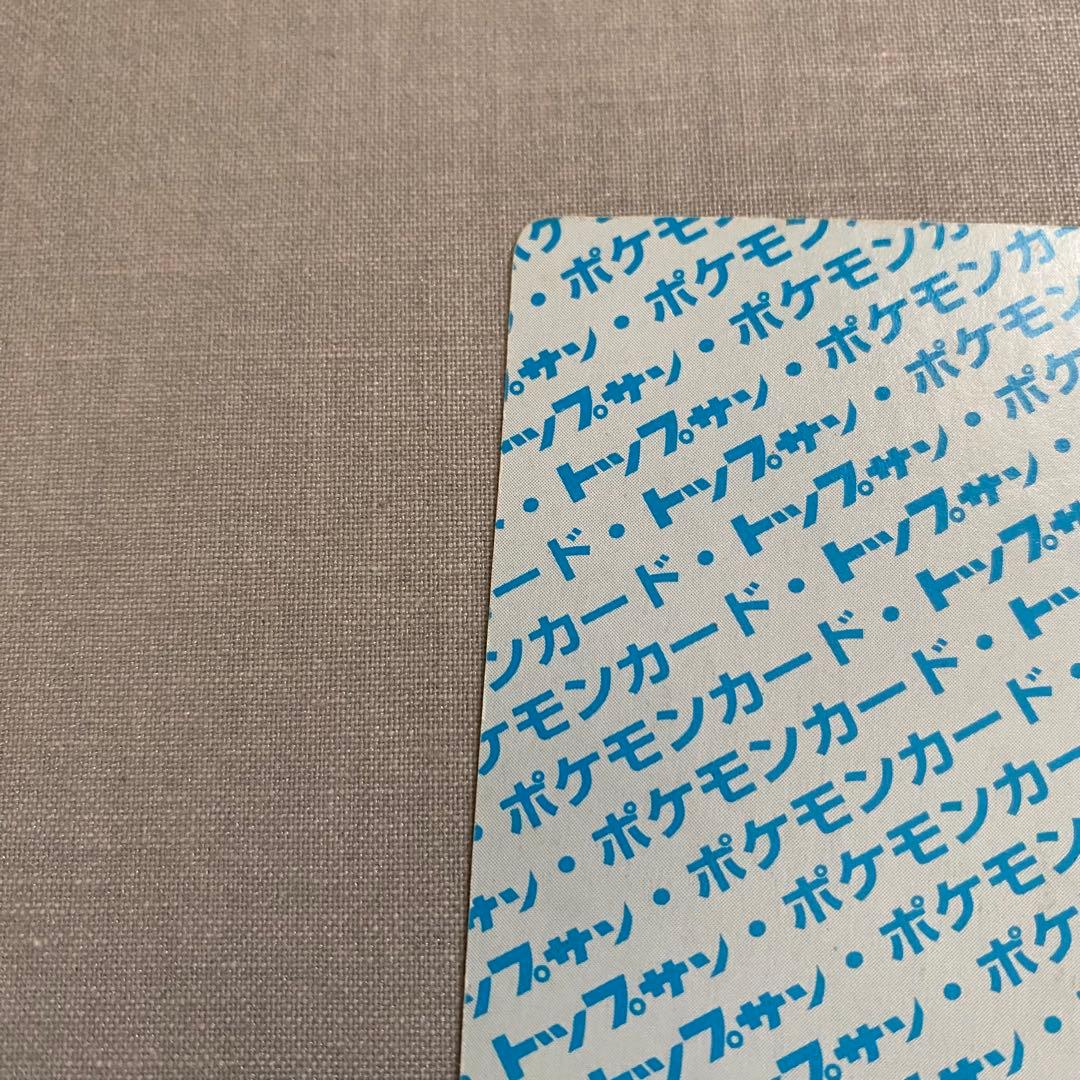 ・ポケモ
プサン・ポケモン
ップサン・ポケモンカ
・トップサン・ポケモンカ
ード・トップサン・ポケモン
ンカード・トップサン・ポケ
ケモンカード・トップサン・
・ポケモンカード・トップサ
サン・ポケモンカード・トッ
ップサン・ポケモンカード・
トップサン・ポケモンカー
ップサン・ポケモン
プサン・ポケ
サン・